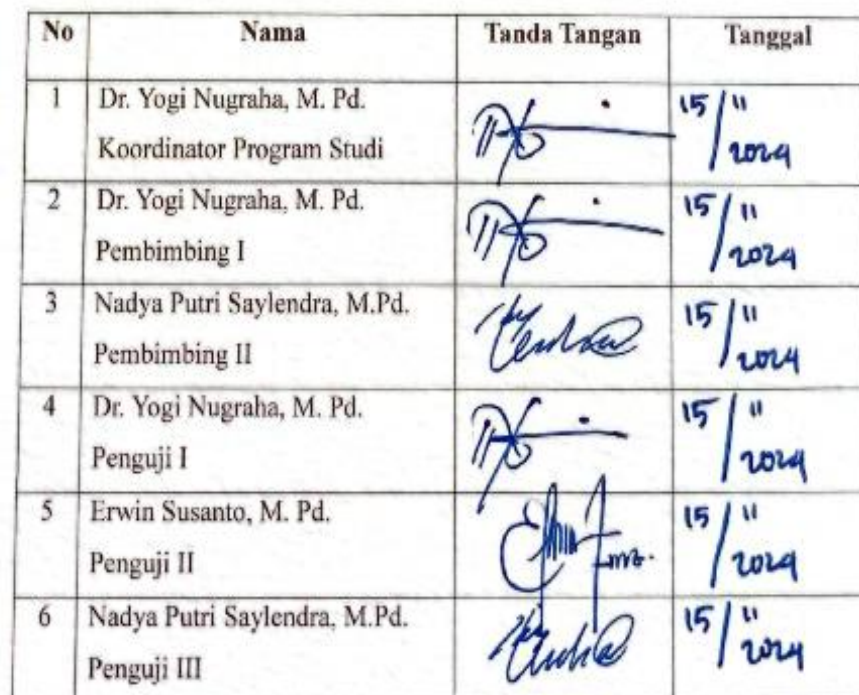 No Nama Tanda Tangan Tanggal
1 Dr. Yogi Nugraha, M. Pd. 15/11
Koordinator Program Studi 2024
2 Dr. Yogi Nugraha, M. Pd. 15/11
Pembimbing I 2024
3 Nadya Putri Saylendra, M.Pd. 15/11
Pembimbing II 2024
4 Dr. Yogi Nugraha, M. Pd. 15/11
Penguji I 2024
5 Erwin Susanto, M. Pd. 15/11
Penguji II 2024
6 Nadya Putri Saylendra, M.Pd. 15/11
Penguji III 2024